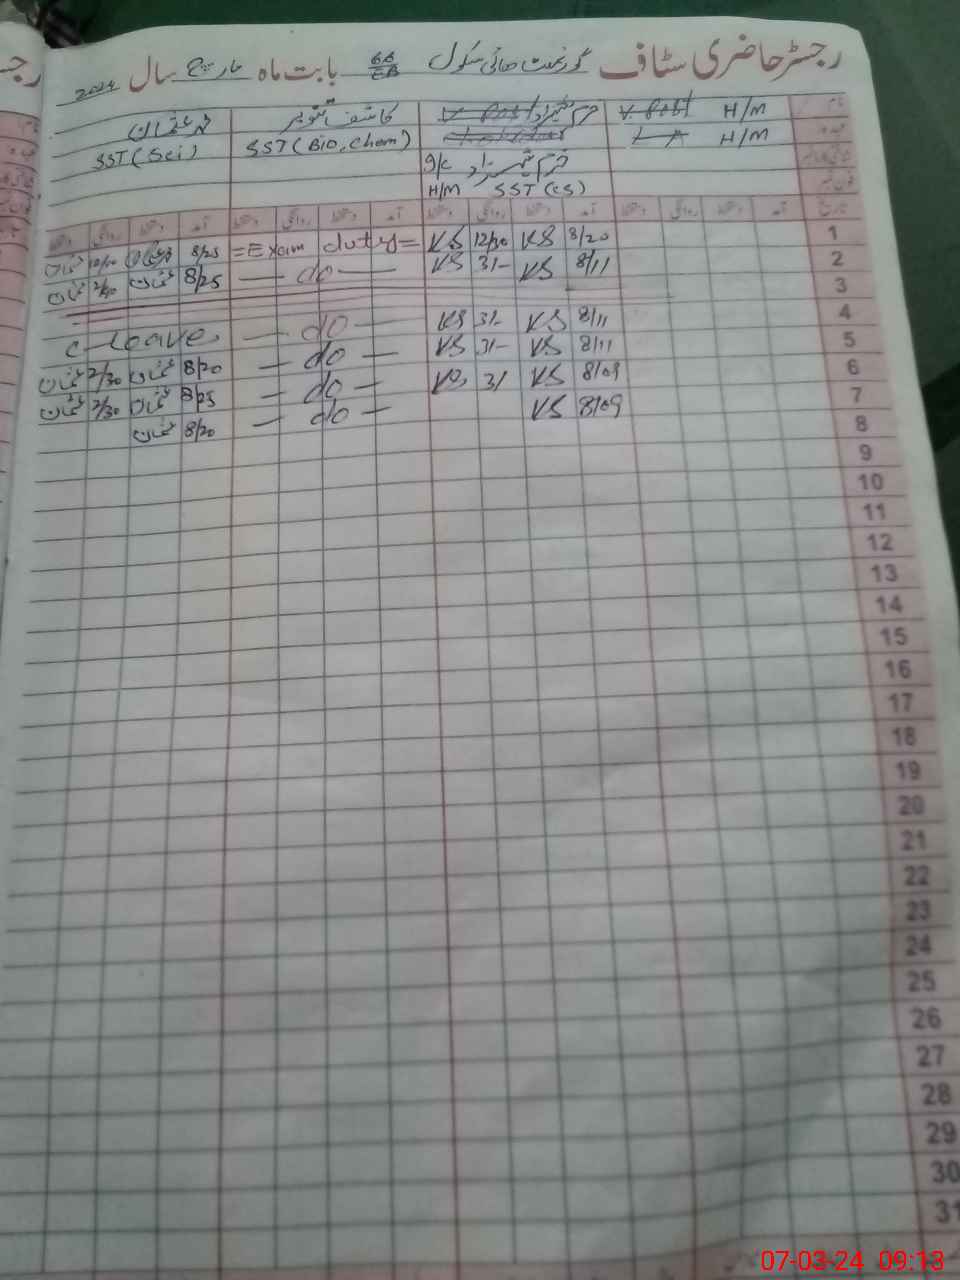 رجسٹر حاضری سٹاف گورنمنٹ ہائی سکول 66/EB بابت ماہ مارچ سال 2024
نام H/M V. Post خرم شہزاد کاشف تنویر محمد عثمان
عہدہ H/M SST (Bio, Chem) SST (Sci)
خرم شہزاد I/C
H/M SST (CS)
تاریخ آمد دستخط روانگی دستخط آمد دستخط روانگی دستخط آمد دستخط روانگی دستخط آمد دستخط روانگی دستخط
1 8/20 KS 12/30 KS =Exam duty= 8/25 عثمان
2 8/11 KS 3/- KS — do — 8/25 عثمان 2/30 عثمان
3
4 8/11 KS 3/- KS — do — C-Leave
5 8/11 KS 3/- KS — do — 8/20 عثمان 2/30 عثمان
6 8/09 KS 3/ KS — do — 8/25 عثمان 2/30 عثمان
7 8/09 KS — do — 8/20 عثمان
8
9
10
11
12
13
14
15
16
17
18
19
20
21
22
23
24
25
26
27
28
29
30
31
07-03-24 09:13